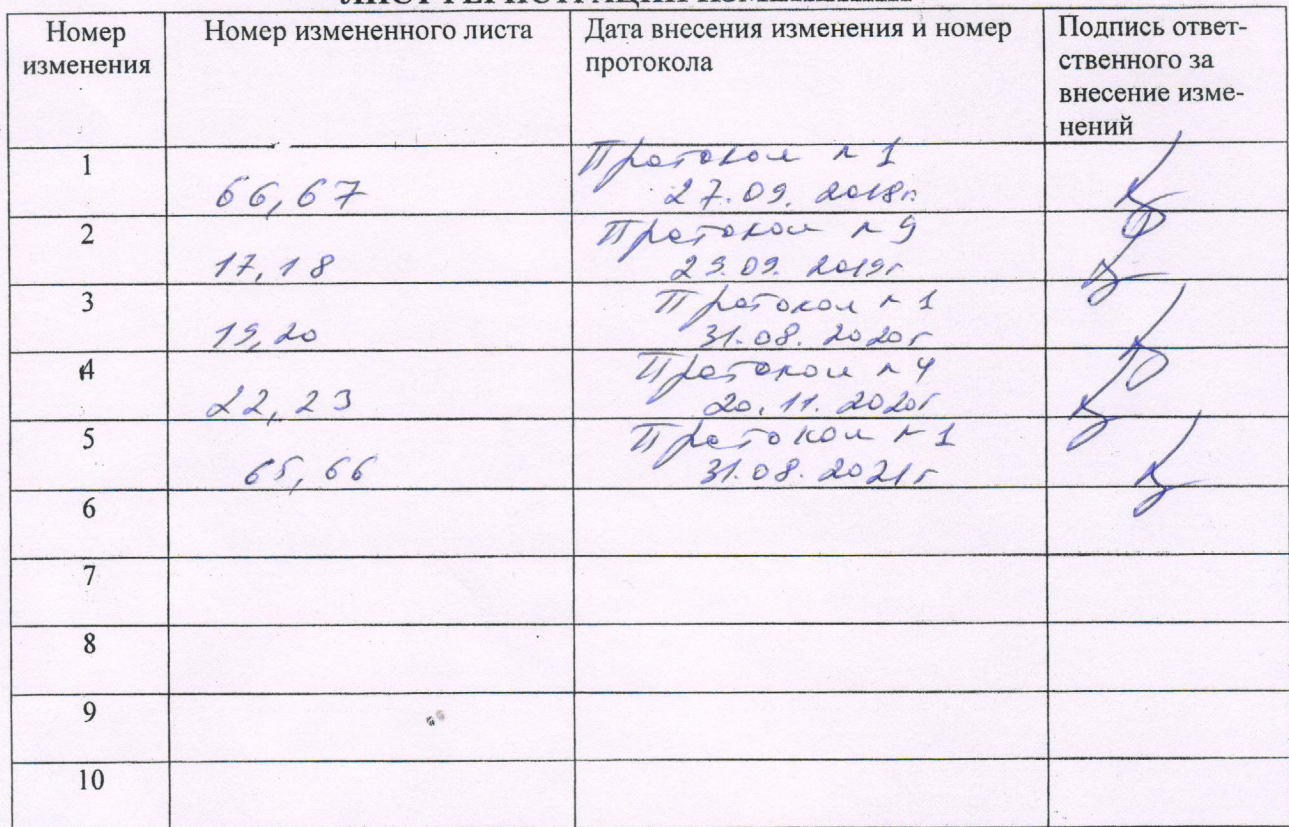 ЛИСТ РЕГИСТРАЦИИ ИЗМЕНЕНИЙ
Номер изменения
Номер измененного листа
Дата внесения изменения и номер протокола
Подпись ответ-
ственного за
внесение изме-
нений
1
66, 67
Протокол № 1
27.09. 2018г.
2
17, 18
Протокол № 9
29.09. 2019г
3
19, 20
Протокол № 1
31.08. 2020г
4
22, 23
Протокол № 4
20.11. 2020г
5
65, 66
Протокол № 1
31.08. 2021г
6
7
8
9
10